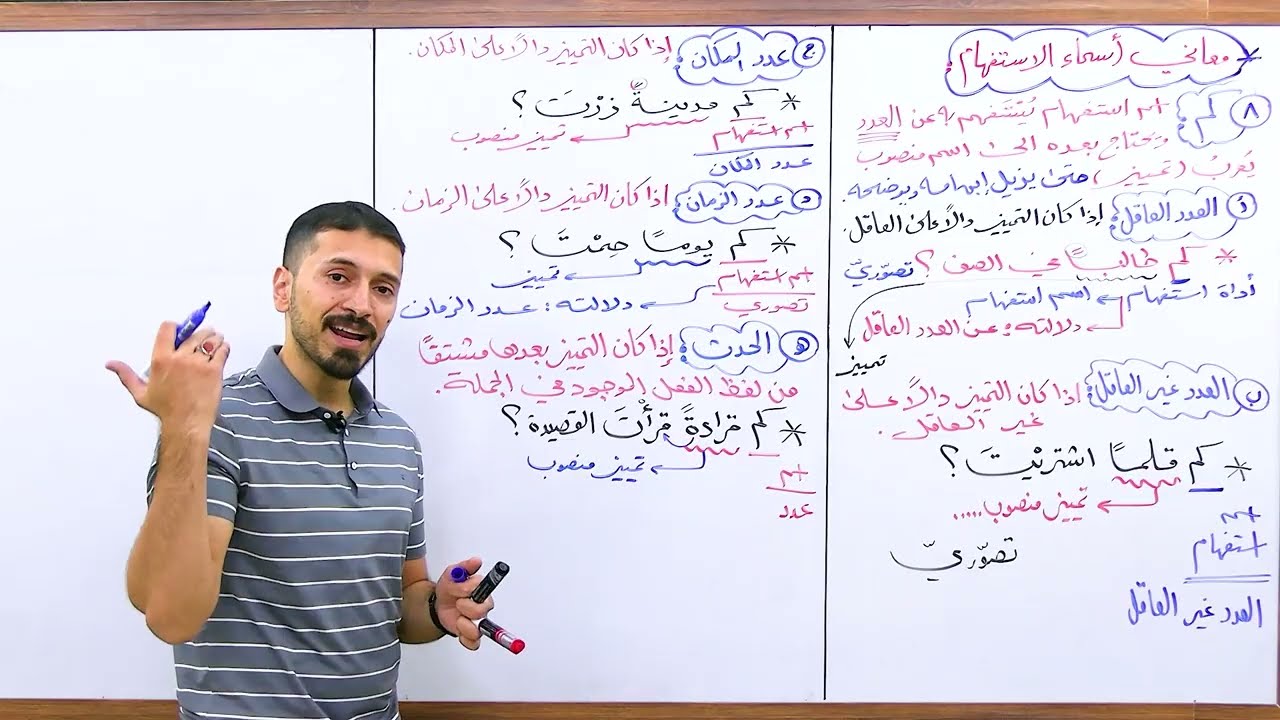 * معاني أسماء الاستفهام:
٨ كم: اسم استفهام يُسْتَفهم به عن العدد
ويحتاج بعده الى اسم منصوب
يُعربُ (تمييز) حتى يزيل إبهامه ويوضحه.
أ العدد العاقل: إذا كان التمييز دالًا على العاقل.
* كم طالبًا في الصف؟ تصوّريّ
أداة استفهام ← اسم استفهام
دلالته: عن العدد العاقل
تمييز
ب العدد غير العاقل: إذا كان التمييز دالًا على
غير العاقل.
* كم قلمًا اشتريْتَ؟
تمييز منصوب.....
اسم
استفهام
تصوّريّ
العدد غير العاقل
ج عدد المكان: إذا كان التمييز دالًا على المكان.
* كم مدينةً زرْتَ؟
اسم استفهام
تمييز منصوب
عدد المكان
د عدد الزمان: إذا كان التمييز دالًا على الزمان.
* كم يومًا صِمْتَ؟
اسم استفهام
تمييز
تصوري
دلالته: عدد الزمان
هـ الحدث: إذا كان التمييز بعدها مشتقًا
من لفظ الفعل الموجود في الجملة.
* كم قراءةً قرأْتَ القصيدة؟
تمييز منصوب
اسم
عدد